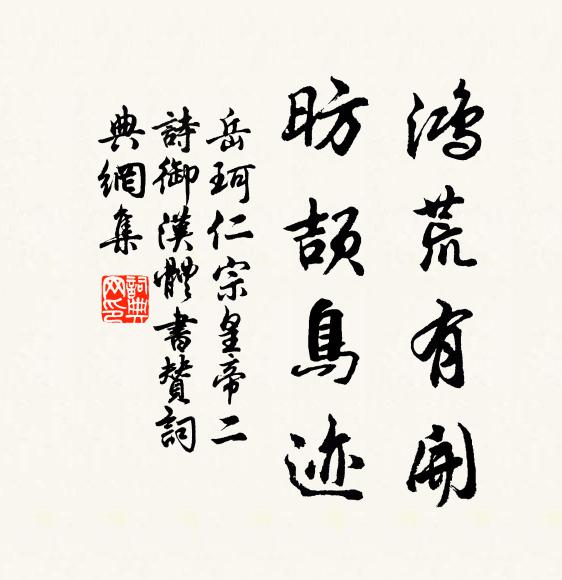 鴻荒有開
昉頡鳥迹
岳珂仁宗皇帝二
詩御漢體書贊詞
典網集
詞典
网印